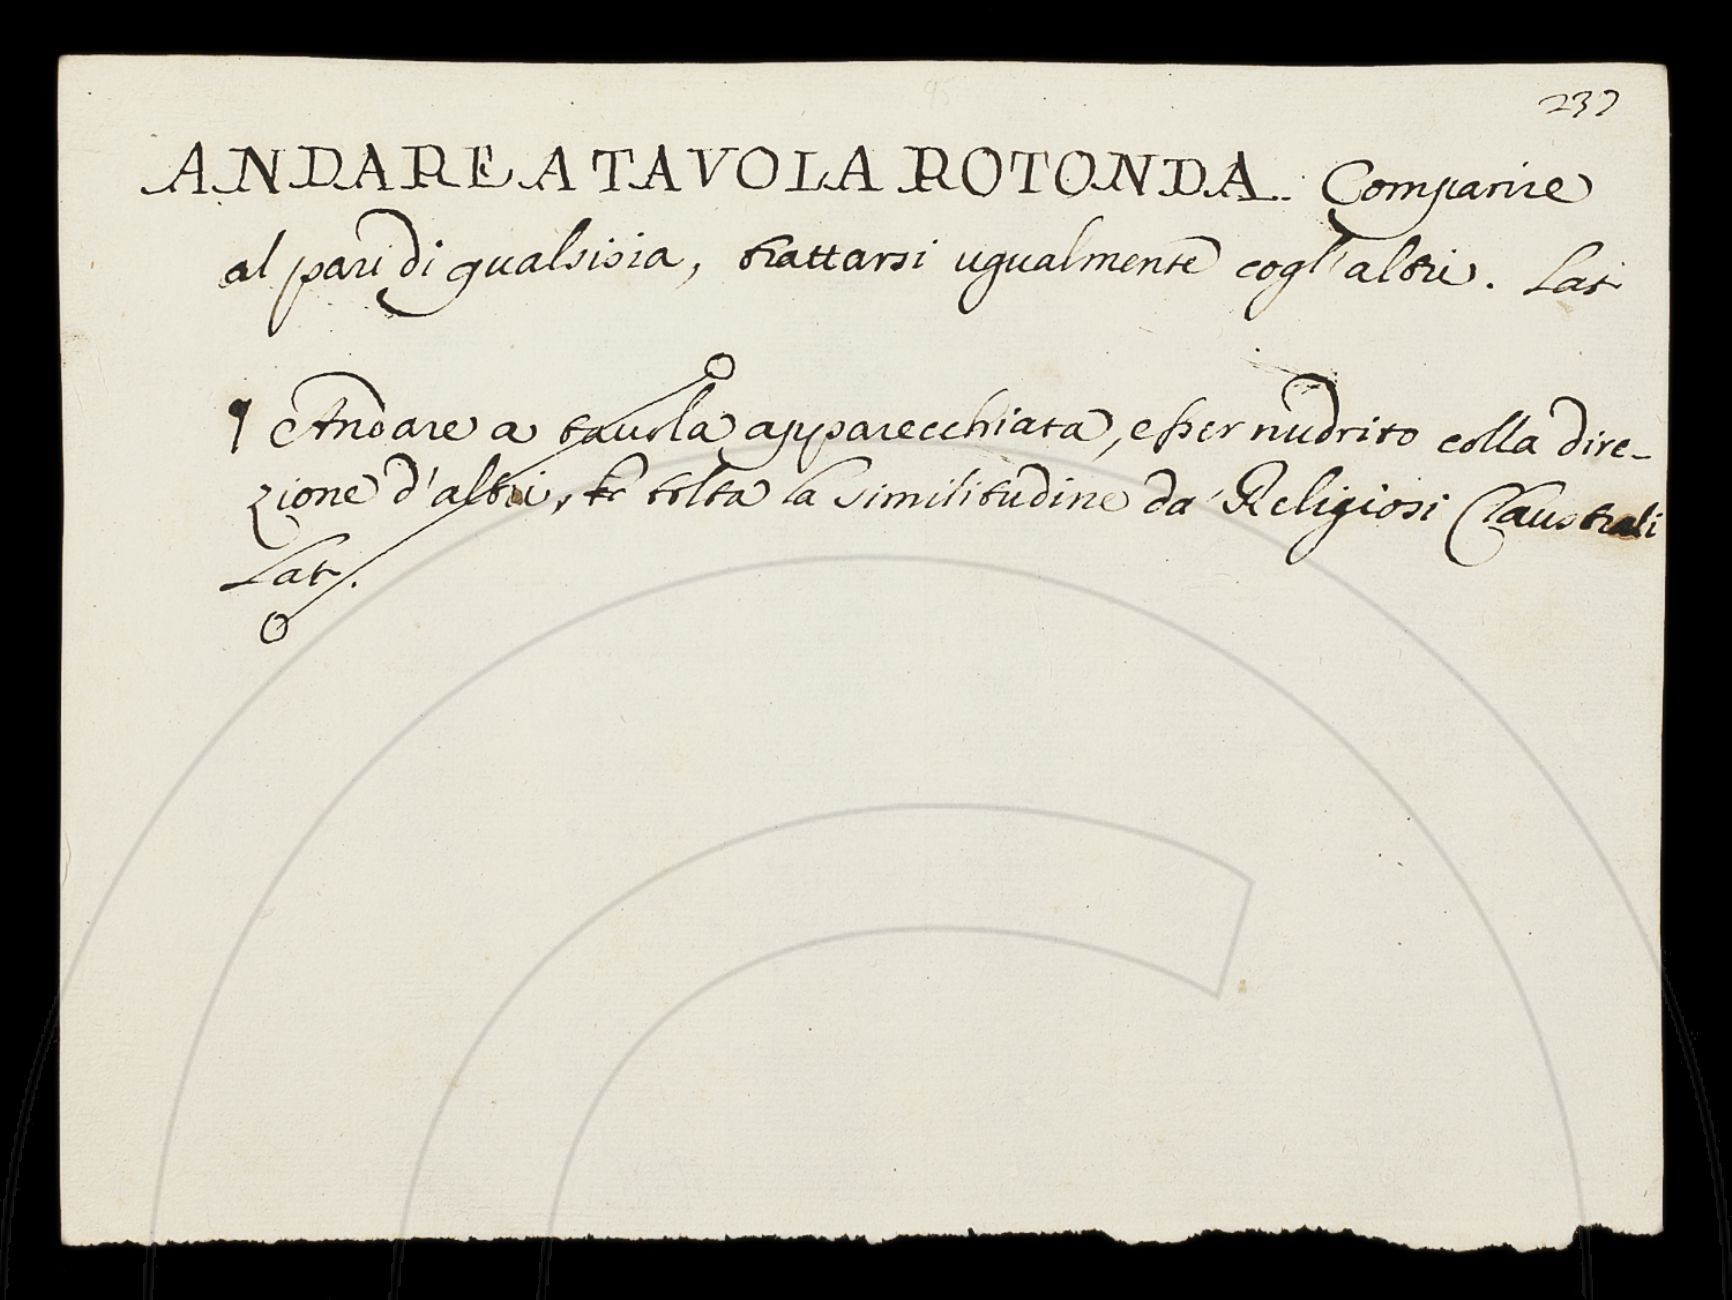 237
ANDARE A TAVOLA ROTONDA. Comparire
al pari di qualsisia, trattarsi ugualmente cogl'altri. Lat
¶ Andare a tavola apparecchiata, esser nudrito colla dire-
zione d'altri, tolta la similitudine da' Religiosi Claustrali
Lat.